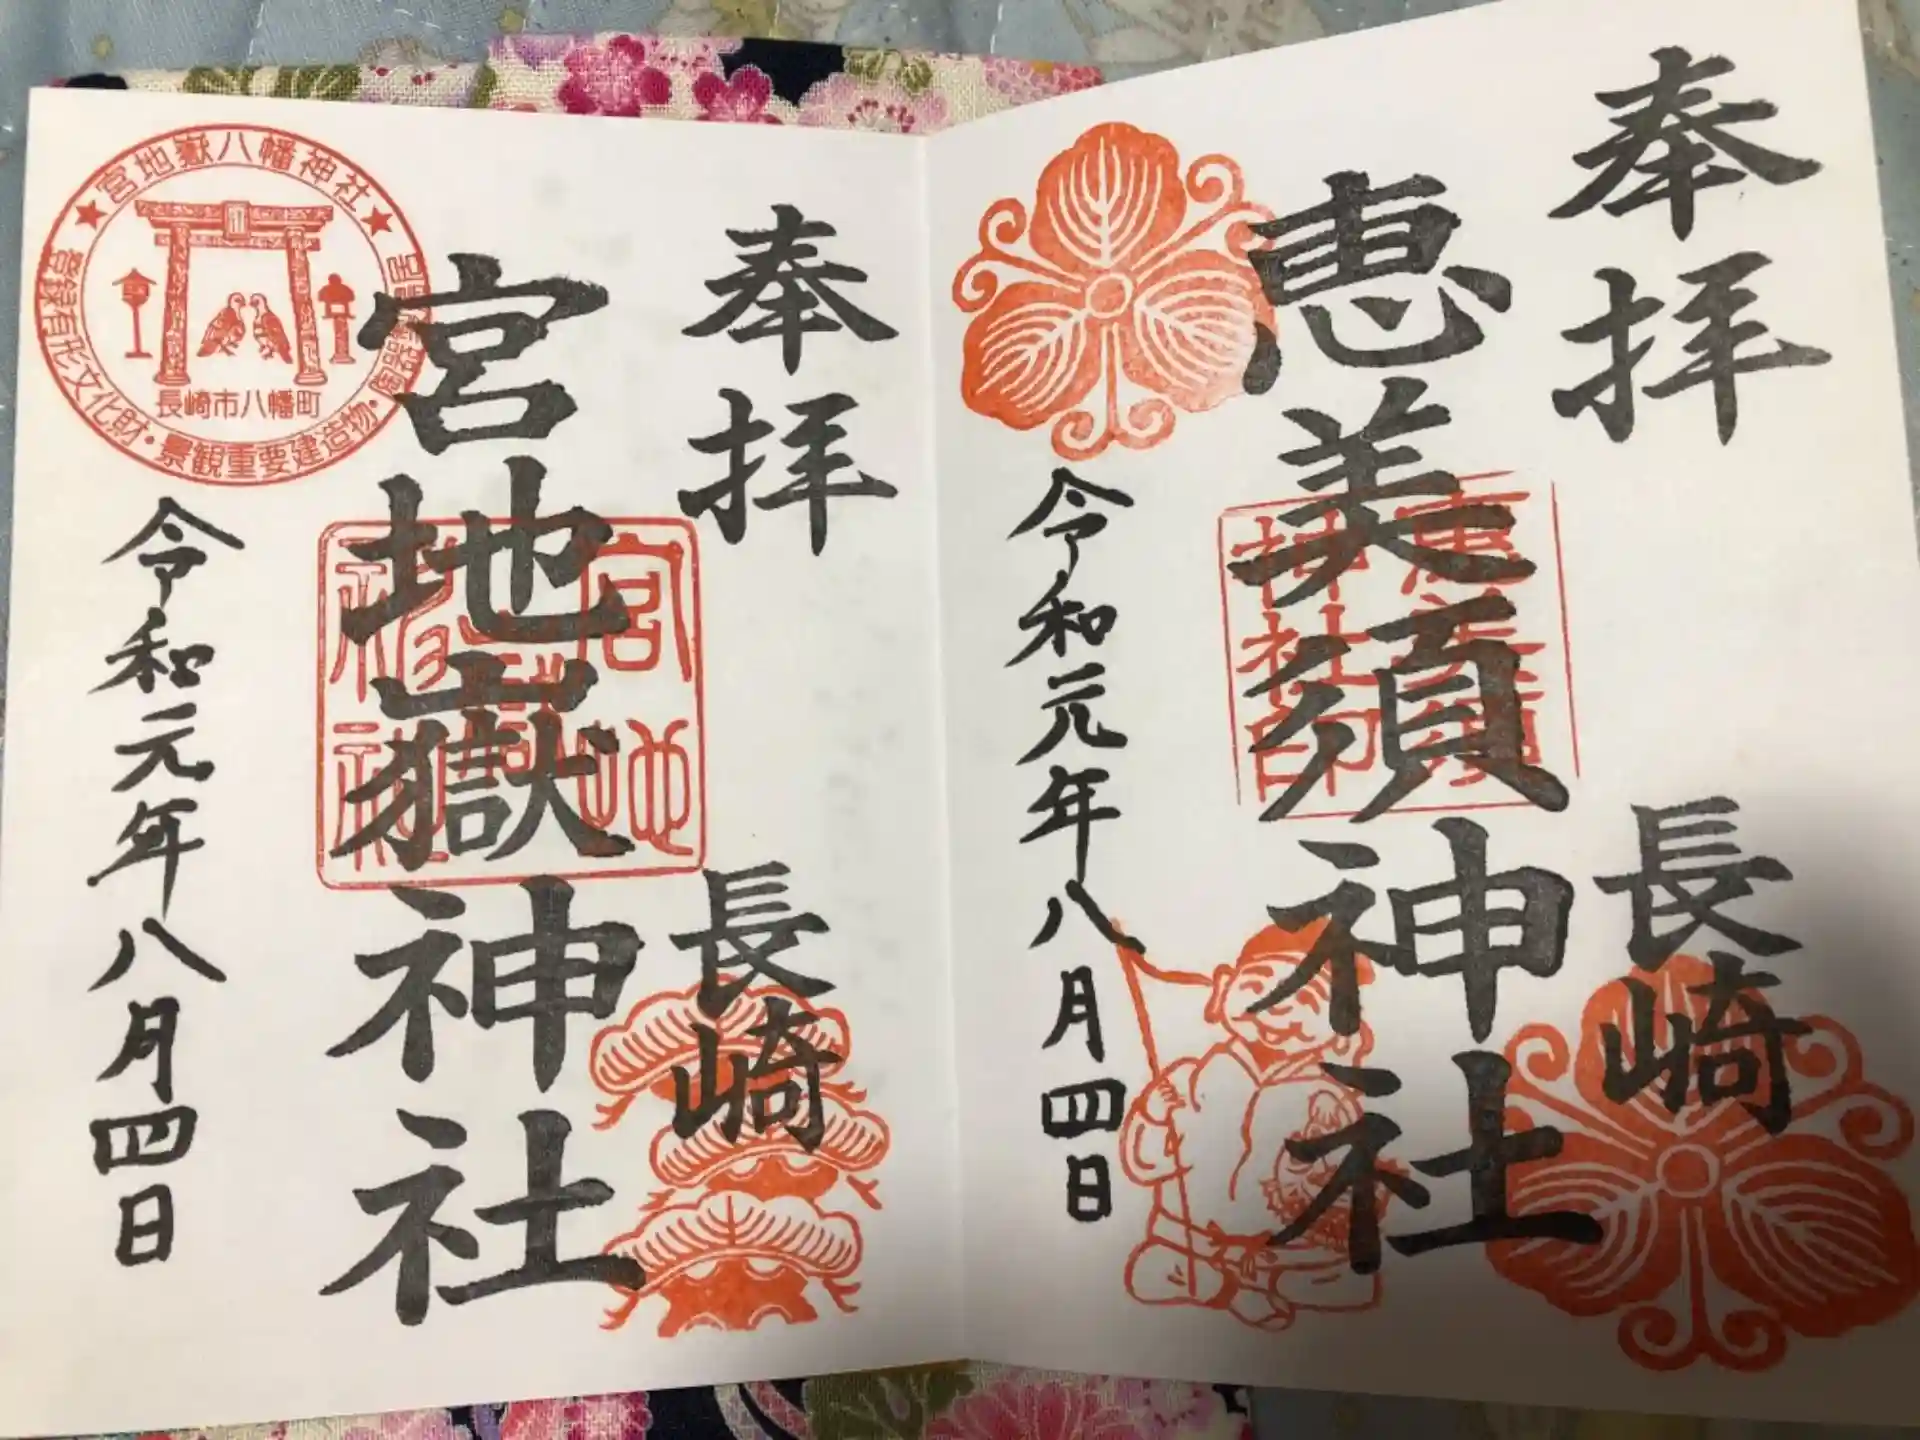 奉拝
長崎
恵美須神社
恵美須
神社印
令和元年八月四日
奉拝
長崎
宮地嶽神社
宮地
嶽
神社
令和元年八月四日
宮地嶽八幡神社
長崎市八幡町
登録有形文化財・景観重要建造物・陶器製鳥居